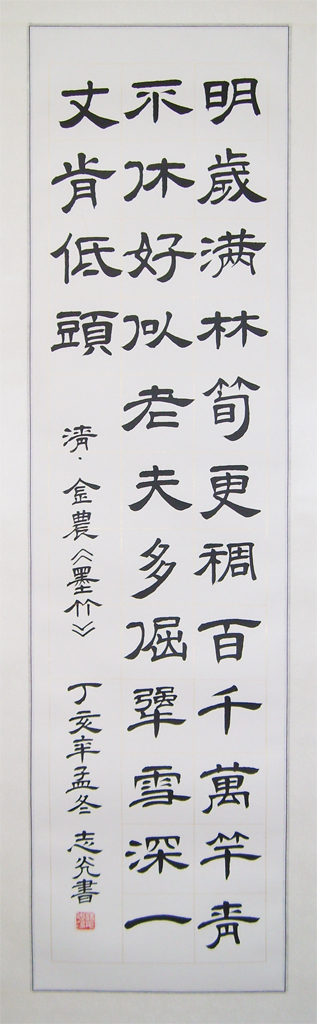 明歲满林筍更稠百千萬竿青
不休好似老夫多倔犟雪深一
丈肯低頭
清·金農《墨竹》 丁亥年孟冬 志光書